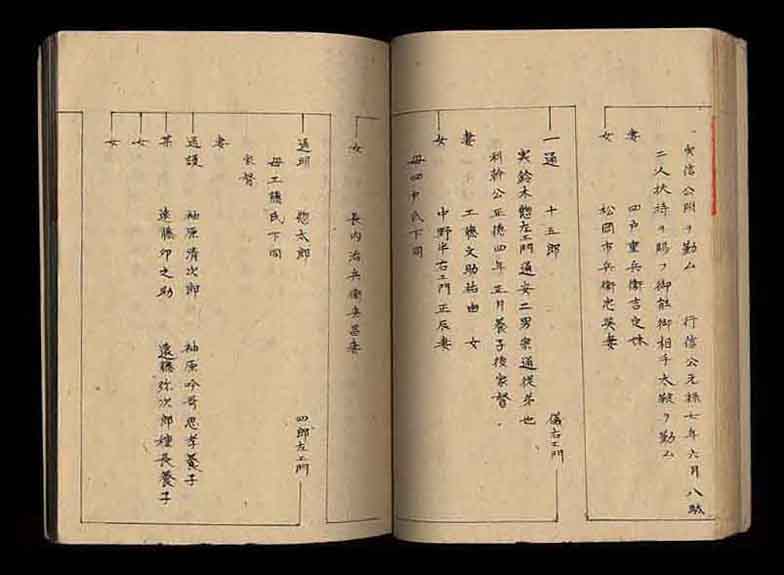 行信公元禄七年六月八駄
二人扶持ヲ賜フ御能御相手太鼓ヲ勤ム
妻 四戸重兵衛言定妹
女 松岡市兵衛忠英妻
一通 十五郎 儀右エ門
実鈴木惣左エ門通安二男宗通従弟也
利幹公正徳四年五月養子後家督
妻 工藤文助祐由 女
女 中野半右エ門正辰妻
母四戸氏下同
女 長内治兵衛 妻
通明 惣太郎 四郎左エ門
母工藤氏下同
家督
妻
通護 袖原清次郎 袖原吟哥忠孝養子
某 遠藤卯之助 遠藤弥次郎種長養子
女
女